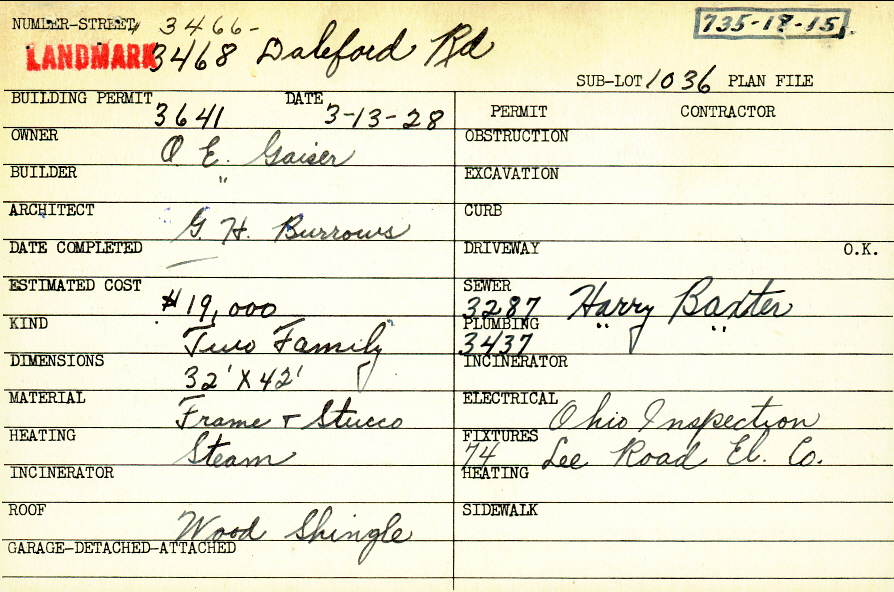 NUMBER-STREET 3466-
735-18-15
LANDMARK 3468 Daleford Rd
SUB-LOT 1036 PLAN FILE
BUILDING PERMIT 3641 DATE 3-13-28
PERMIT CONTRACTOR
OWNER O E. Gaiser
OBSTRUCTION
BUILDER "
EXCAVATION
ARCHITECT G. H. Burrows
CURB
DATE COMPLETED —
DRIVEWAY O.K.
ESTIMATED COST $19,000
SEWER 3287 Harry Baxter
KIND Two Family
PLUMBING 3437 " "
DIMENSIONS 32' X 42'
INCINERATOR
MATERIAL Frame + Stucco
ELECTRICAL Ohio Inspection
HEATING Steam
FIXTURES 74 Lee Road El. Co.
INCINERATOR
HEATING
ROOF Wood Shingle
SIDEWALK
GARAGE-DETACHED-ATTACHED